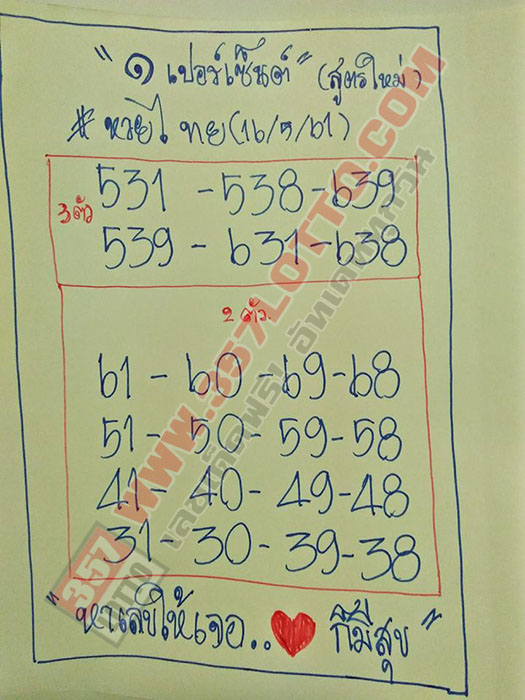 "๑ เปอร์เซ็นต์" (สูตรใหม่)
# หวยไทย (16/5/61)
3 ตัว
531 - 538 - 639
539 - 631 - 638
2 ตัว.
61 - 60 - 69 - 68
51 - 50 - 59 - 58
41 - 40 - 49 - 48
31 - 30 - 39 - 38
"หาเลขให้เจอ.. ❤ ก็มีสุข"
357 LOTTO
WWW.357LOTTO.COM